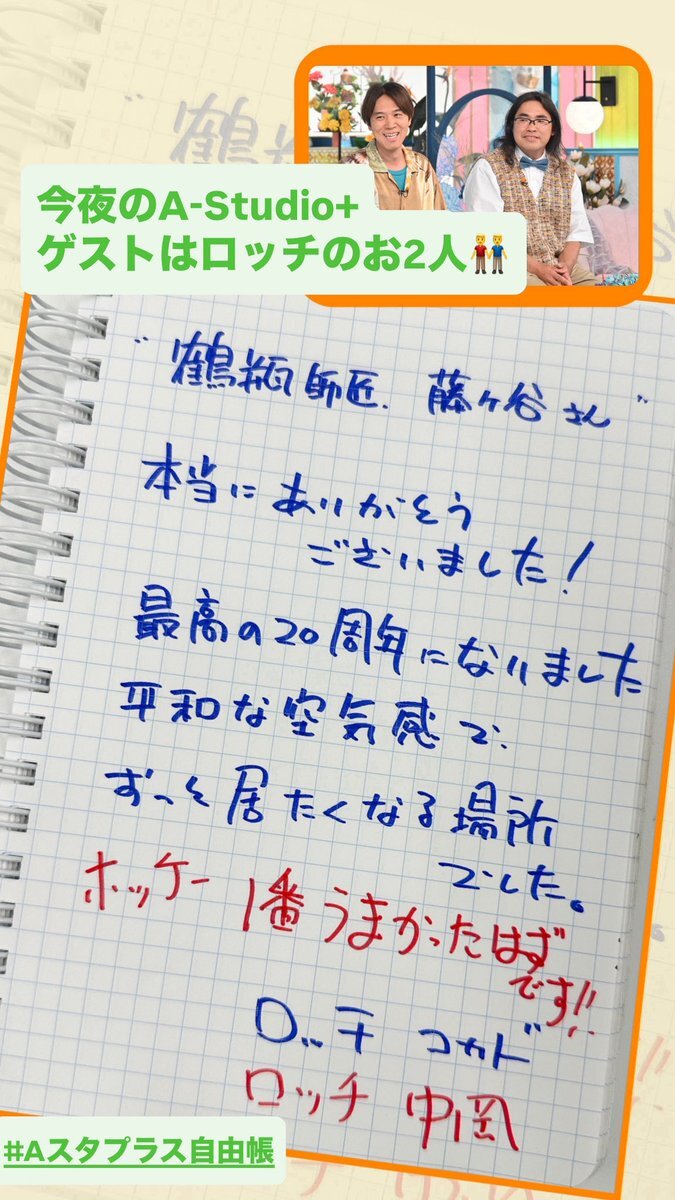 今夜のA-Studio+
ゲストはロッチのお2人👬
"鶴瓶師匠.藤ヶ谷さん"
本当にありがとう
ございました!
最高の20周年になりました
平和な空気感で.
ずっと居たくなる場所
でした。
ホッケー1番うまかったはず
です!!
ロッチ コカド
ロッチ 中岡
#Aスタプラス自由帳